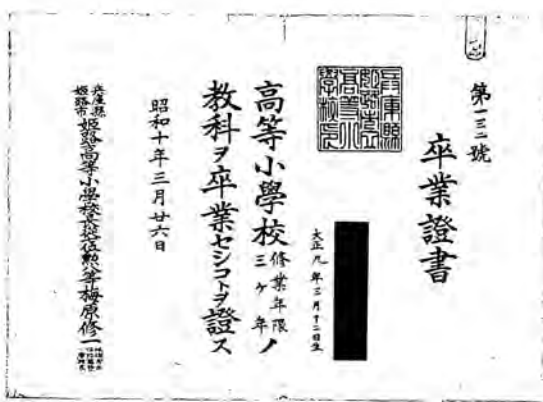 第一三二號
卒業證書
大正九年三月十二日生
高等小學校修業年限三ケ年ノ
教科ヲ卒業セシコトヲ證ス
昭和十年三月廿六日
兵庫縣姫路市姫路高等小學校長從七位勲八等梅原修一